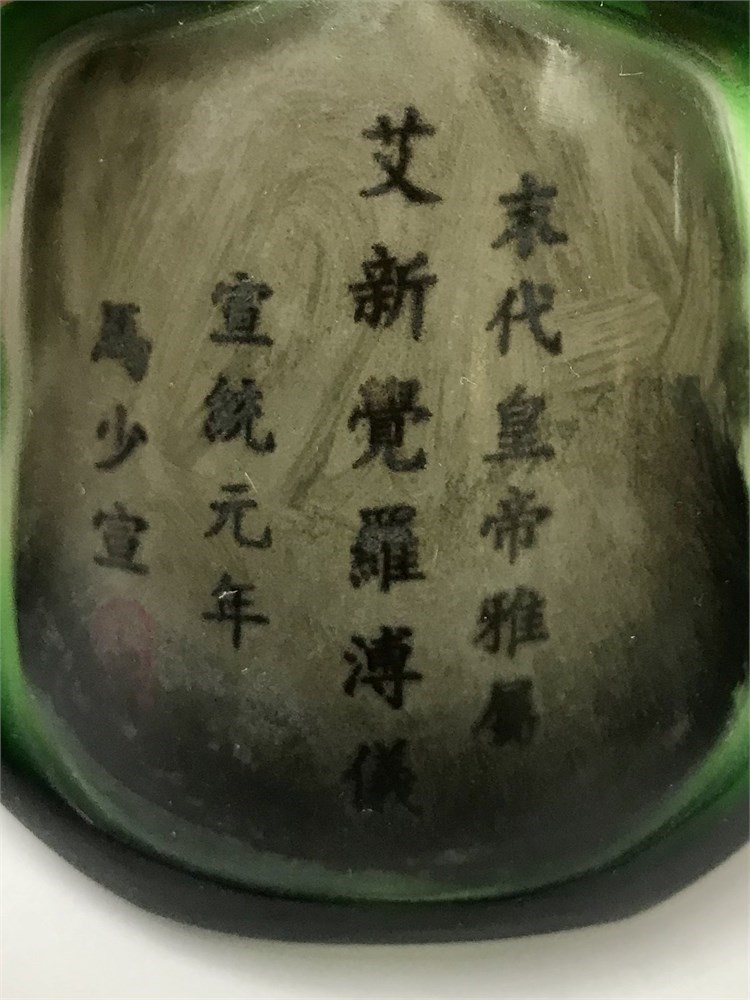 末代皇帝雅屬
艾新覺羅溥儀
宣統元年
馬少宣